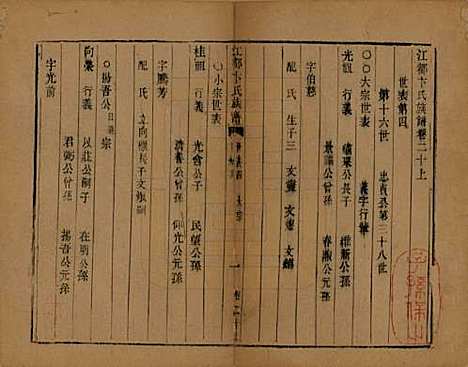 江都卞氏族譜卷二十上
世表第四
第十六世　忠貞公第三十八世
〇〇大宗世表　義字行輩
光祖　行義　公長子　維新公孫
公曾孫　春淑公元孫
字伯慈
配　氏　生子三　文　文　文
江都卞氏族譜
一
卷二十
〇小宗世表
桂祖　行義　光含公子　民望公孫
公曾孫　仰亢公元孫
字騰芳
配　氏　立向　長子文　嗣
〇助吾公宗
向榮　行義　以莊公嗣子　在明公孫
君弼公曾孫　揚吾公元孫
字光前